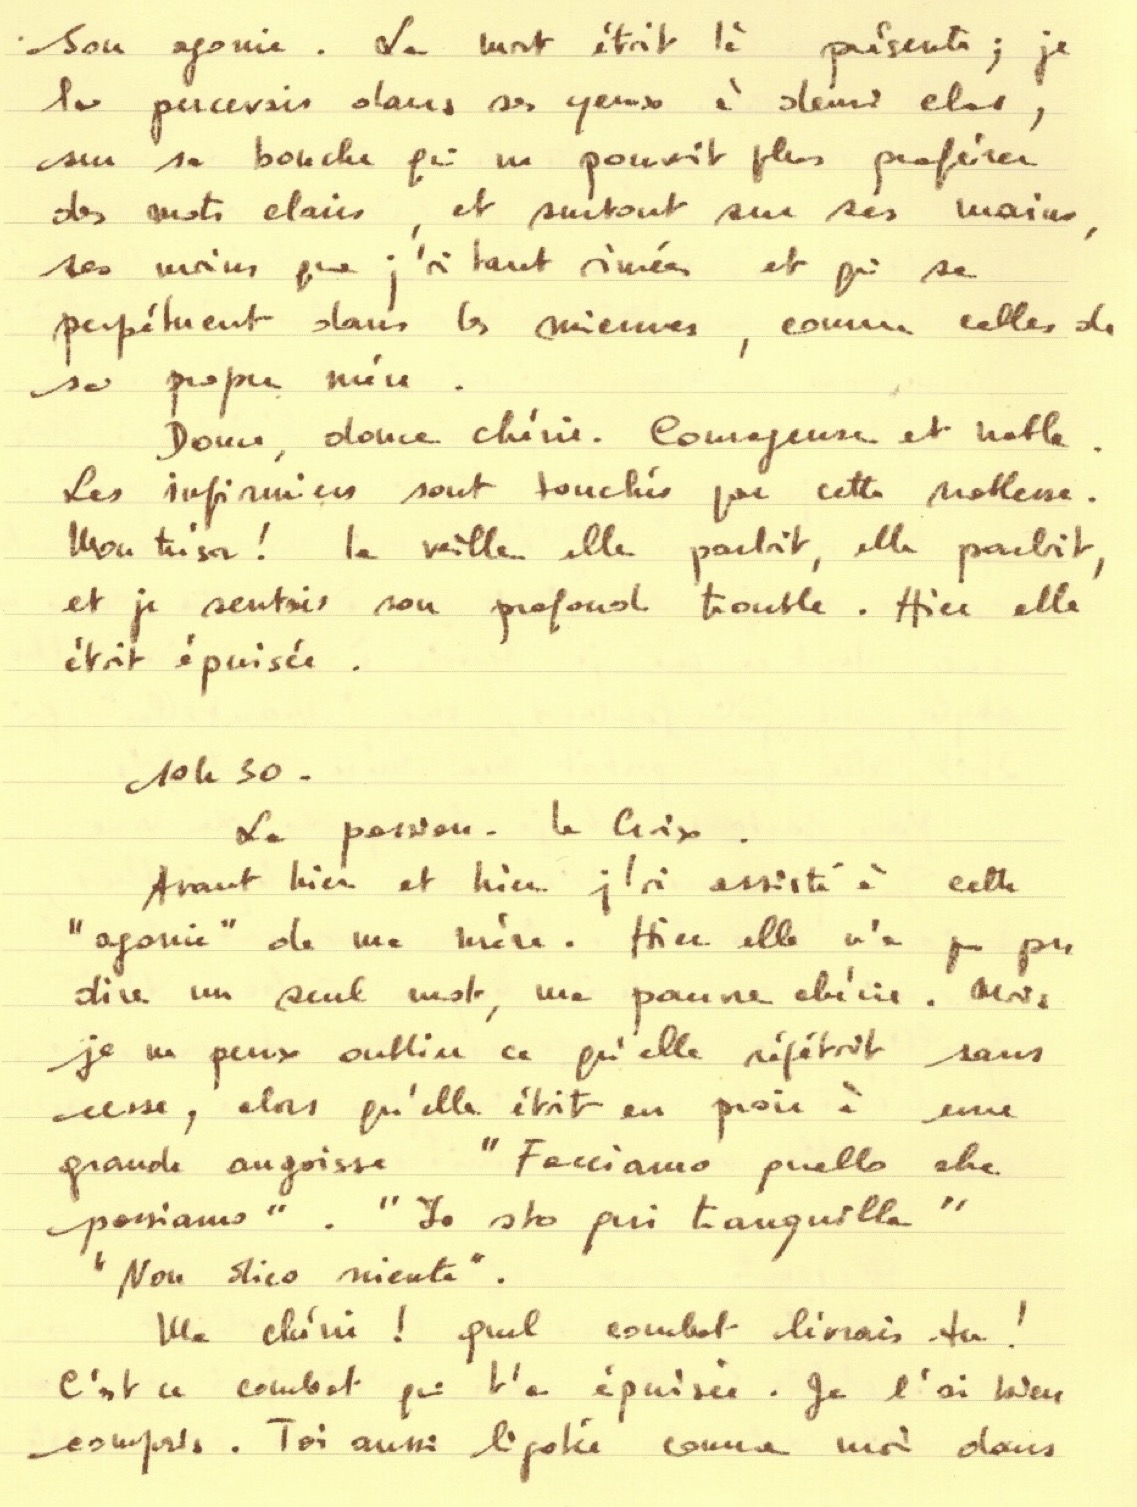 Son agonie. La mort était là présente ; je
la percevais dans ses yeux à demi clos,
sur sa bouche qui ne pouvait plus proférer
des mots clairs, et surtout sur ses mains,
ses mains que j'ai tant aimées et qui se
perpétuent dans les miennes, comme celles de
sa propre mère.
Douce, douce chérie. Courageuse et noble.
Les infirmiers sont touchés par cette noblesse.
Mon trésor ! La veille elle parlait, elle parlait,
et je sentais son profond trouble. Hier elle
était épuisée.
10h30.
La passion. La Croix.
Avant hier et hier j'ai assisté à cette
"agonie" de ma mère. Hier elle n'a pas pu
dire un seul mot, ma pauvre chérie. Mais
je ne peux oublier ce qu'elle répétait sans
cesse, alors qu'elle était en proie à une
grande angoisse "Facciamo quello che
possiamo". "Io sto qui tranquilla"
"Non dico niente".
Ma chérie ! quel combat livrais-tu !
C'est ce combat qui t'a épuisée. Je l'ai bien
compris. Toi aussi ligotée comme moi dans